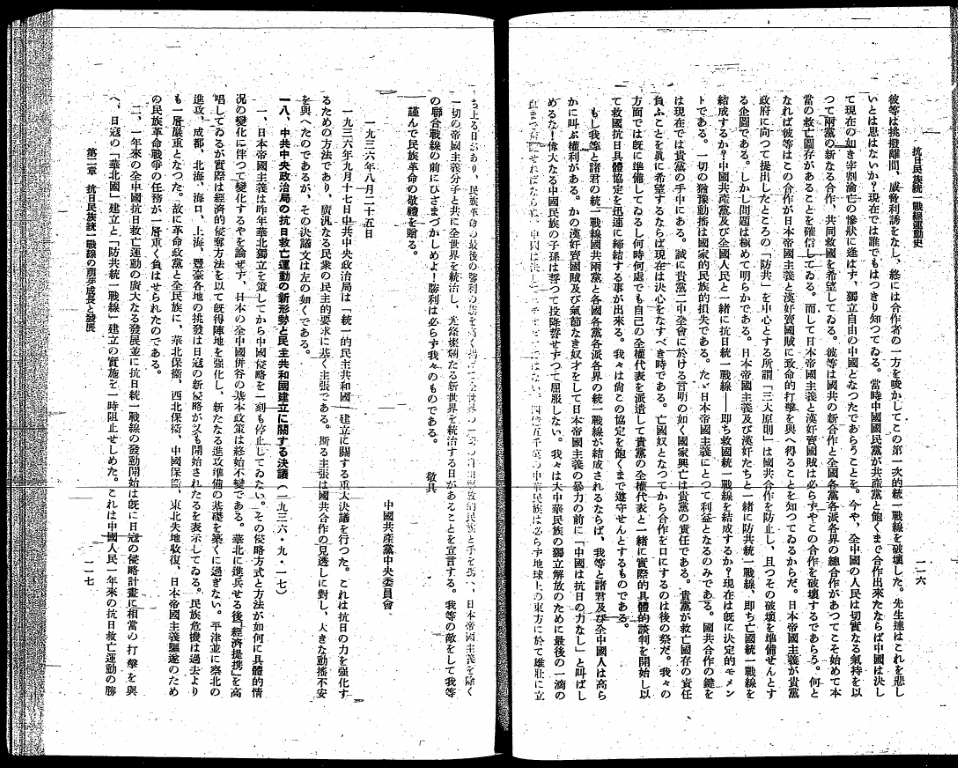 抗日民族統一戰線運動史
一一六
彼等は挑撥離間、威脅利誘をなし、終には合作者の一方を唆かしてこの第一次的統一戰線を破壞した。先生達はこれを悲し
いとは思はないか？現在では誰でもはつきり知つてゐる。當時中國國民黨が共産黨と飽くまで合作出來たならば中國は決し
て現在の如き宰割淪亡の慘狀に逢はず、獨立自由の中國となつたであらうことを。今や、全中國の人民は切實なる氣持を以
つて兩黨の新なる合作、共同救國を希望してゐる。彼等は國共の新合作と全國各黨各派各界の總合作があつてこそ始めて本
當の救亡圖存があることを確信してゐる。而して日本帝國主義と漢奸賣國賊は必らずやこの合作を破壞するであらう。何と
なれば彼等はこの合作が日本帝國主義と漢奸賣國賊に致命的打擊を與へ得ることを知つてゐるからだ。日本帝國主義が貴黨
政府に向つて提出したところの「防共」を中心とする所謂「三大原則」は國共合作を防止し、且つその破壞を準備せんとす
る企圖である。しかし問題は極めて明らかである。日本帝國主義及び漢奸たちと一緒に防共統一戰線、即ち亡國統一戰線を
結成するか？中國共産黨及び全國人民と一緒に抗日統一戰線——即ち救國統一戰線を結成するか？現在は既に決定的モメン
トである。一切の猶豫動搖は國家的民族的損失である。たゞ日本帝國主義にとつて利益となるのみである。國共合作の鍵を
は現在では貴黨の手中にある。誠に貴黨二中全會に於ける言明の如く國家興亡は貴黨の責任である。貴黨が救亡國存の責任
負ふことを眞に希望するならば現在は決心をなすべき時である。亡國奴となつてから合作を口にするのは後の祭だ。我々の
方面では既に準備してゐるし何時何處でも自己の全權代表を派遣して貴黨の全權代表と一緒に實際的具體的談判を開始し以
て救國抗日具體協定を迅速に締結する事が出來る。我々は尙この協定を飽くまで遵守せんとするものである。
もし我等と諸君の統一戰線國共兩黨と各國各黨各派各界の統一戰線が結成されるならば、我等と諸君及び全中國人は高ら
かに叫ぶ權利がある。かの漢奸賣國賊及び氣節なき奴才をして日本帝國主義の暴力の前に「中國は抗日の力なし」と叫ばし
めるな！偉大なる中國民族の子孫は誓つて投降誓せずつて屈服しない。我々は大中華民族の獨立解放のために最後の一滴の
中華民族は必らず地球上の東方に於て雄壯に立
ち上る日があり、民族革命の最後の勝利の旗を
一切の帝國主義分子と共に全世界を統治し、光輝燦爛たる新世界を統治する日があることを宣言する。我等の敵をして我等
の聯合戰線の前にひざまづかしめよ！勝利は必らず我々のものである。
謹んで民族革命の敬禮を贈る。
敬具
中國共產黨中央委員會、
一九三六年八月二十五日
一九三六年九月十七日中共中央政治局は「統一的民主共和國」建立に關する重大決議を行つた。これは抗日の力を强化す
るための方法であり、廣汎なる民衆の民主的要求に基く主張である。斯る主張は國共合作の見透しに對し、大きな動搖不安
を與へたのであるが、その決議文は左の如くである。
一八、中共中央政治局の抗日救亡運動の新形勢と民主共和國建立に關する決議（一九三六・九・一七）
一、日本帝國主義は昨年華北獨立を策してから中國侵略を一刻も停止してゐない。その侵略方式と方法が如何に具體的情
況の變化に伴つて變化するやを論ぜず、日本の全中國併吞の基本政策は終始不變である。華北に進兵せる後「經濟提携」を高
唱してゐるが實際は經濟的侵奪方法を以て既得陣地を强化し、新たなる進攻準備の基礎を築くに過ぎない。平津並に察北の
進攻、成都、北海、海口、上海、豐臺各地の挑發は日寇の新侵略が又も開始されたるを表示してゐる。民族危機は過去より
も一層嚴重となつた。故に革命政黨と全民族に、華北保衞、西北保衞、中國保衞、東北失地收復、日本帝國主義驅逐のため
の民族革命戰爭の任務が一層重く負はせられたのである。
二、一年來の全中國抗日救亡運動の廣大なる發展並に抗日統一戰線の發動開始は既に日寇の侵略計畫に相當の打擊を與
へ、日寇の「華北國」建立と「防共統一戰線」建立の實施を一時阻止せしめた。これは中國人民一年來の抗日救亡運動の勝
第二章　抗日民族統一戰線の萌芽成長と發展
一一七